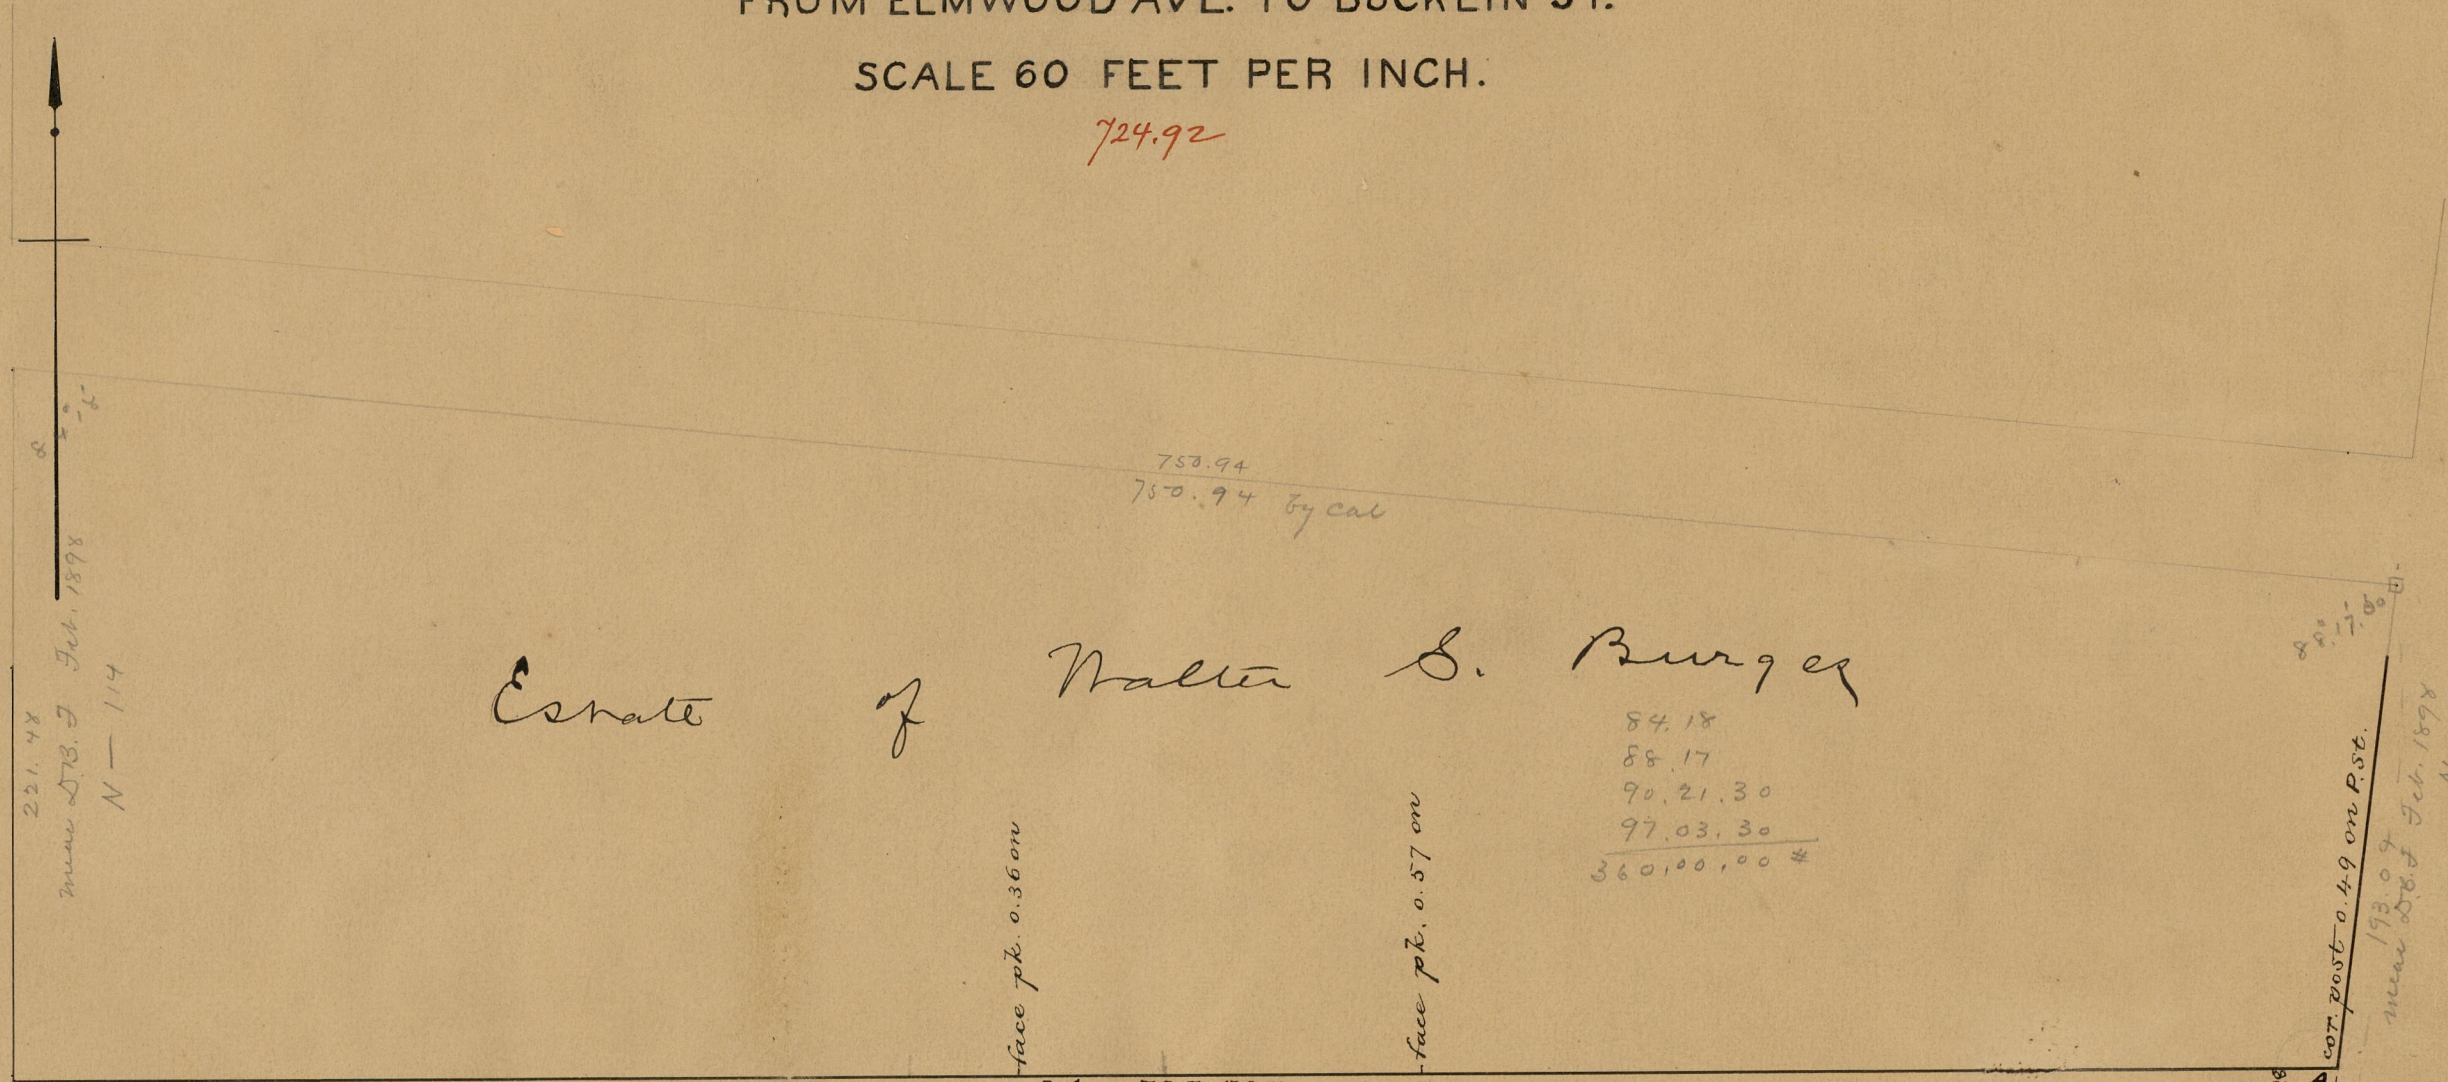 FROM ELMWOOD AVE. TO BUCKLIN ST.
SCALE 60 FEET PER INCH.
724.92
750.94
750.94 by cal
Estate of Walter S. Burges
84.18
88.17
90.21.30
97.03.30
360.00.00 #
221.48
meas D.B.F Feb. 1898
N — 114
face pk. 0.36 on
face pk. 0.57 on
cor. post 0.49 on P.St.
193.04
meas D.B.F Feb. 1898